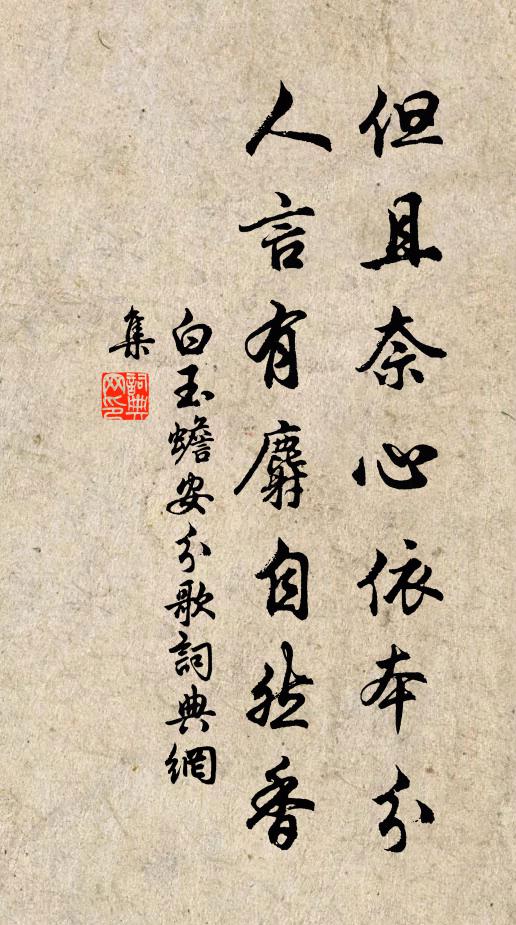 但且奈心依本分
人言有麝自然香
白玉蟾安分歌詞典網
集
詞典
网印